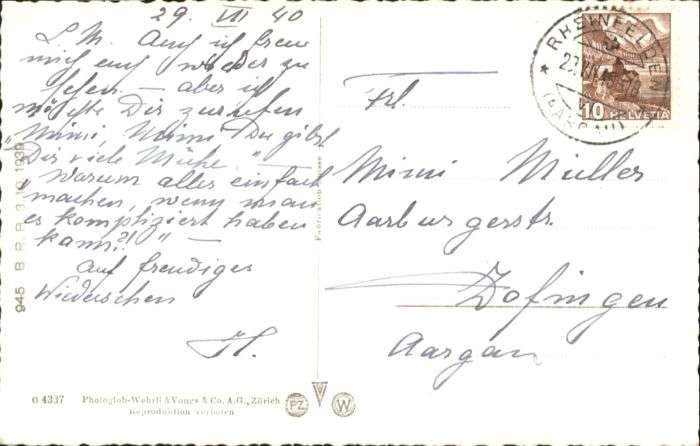 29. VII 40
L. M. Auch ich freue
mich euch wieder zu
sehen – aber ich
möchte Dir zurufen
"Mimi, Mimi Du gibst
Dir viele Mühe."
"Warum alles einfach
machen, wenn man
es kompliziert haben
kann?!" –
Auf freudiges
Wiedersehen
H.
Frl.
Mimi Müller
Aarburgerstr.
Zofingen
Aargau
RHEINFELDEN
(AARGAU)
10 HELVETIA
945 B R B 3.10.1939
O 4337 Photoglob-Wehrli & Vouga & Co. A.G., Zürich
Reproduktion verboten
PZ
V
W